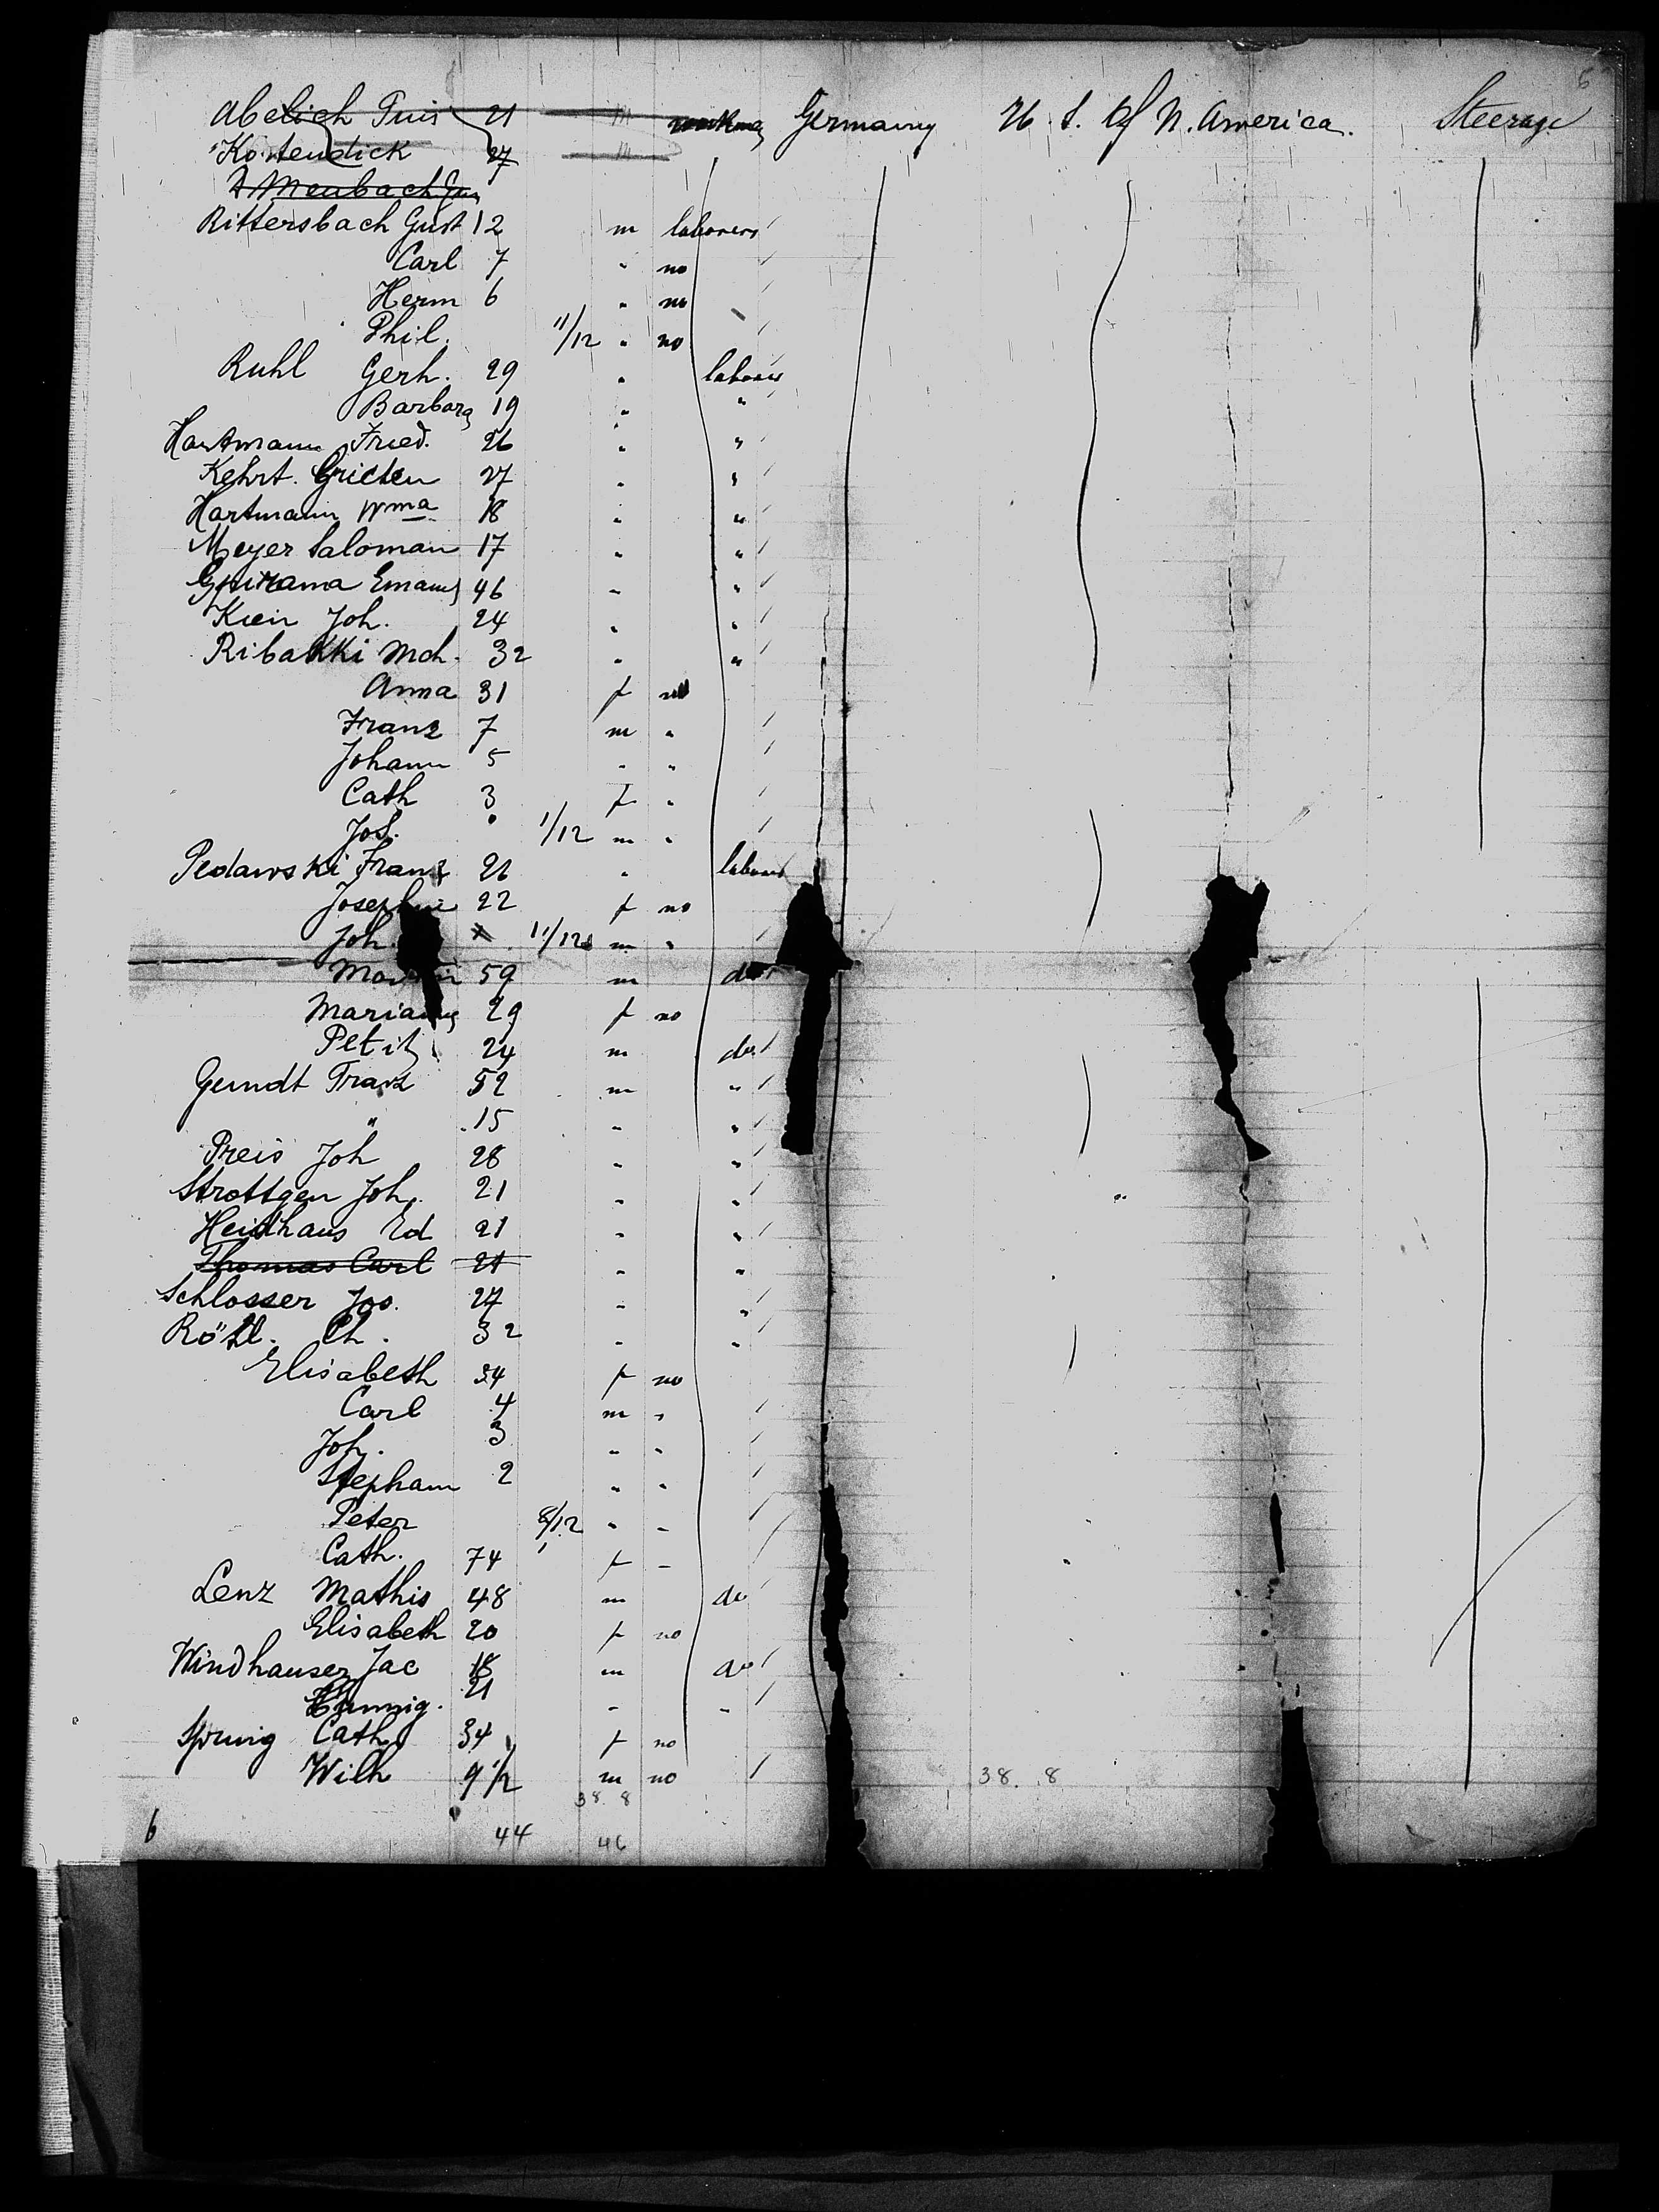 Abelich 21 m Germany U. S. of N. America. Steerage
Kostendick 27 m
Rittersbach Gust 12 m laborers
Carl 7 " no
Herm 6 " no
Phil. 11/12 " no
Ruhl Gerh. 29 " laborer
Barbara 19 " "
Hartmann Fried. 26 " "
Kehrt. 27 " "
Hartmann Wma 18 " "
Meyer Saloman 17 " "
Emanuel 46 " "
Joh. 24 " "
Ribakki Mch. 32 " "
Anna 31 f no
Franz 7 m "
Johann 5 " "
Cath 3 f "
Jos. 1/12 m "
Pedawski Franz 26 " laborer
Josephine 22 f no
Joh. 11/12 m "
59 m do
Marianna 29 f no
24 m do
Gerndt Franz 52 m "
" 15 " "
Preis Joh 28 " "
Strottgen Joh. 21 " "
Heidhaus Ed 21 " "
Thomas Carl 21 " "
Schlosser Jos. 27 " "
Ch. 32 " "
Elisabeth 34 f no
Carl 4 m "
Joh. 3 " "
Stephann 2 " "
Peter 8/12 " "
Cath. 74 f "
Lenz Mathis 48 m do
Elisabeth 20 f no
Windhauser Jac 18 m do
21 " "
Sprung Cath 34 f no
Wilh 9 1/2 m no
38. 8 38. 8
6 44 46